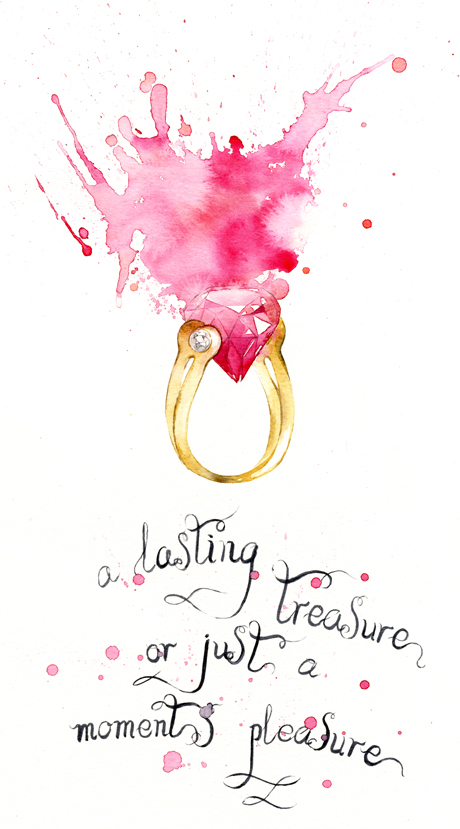 a lasting
treasure
or just a
moment's pleasure